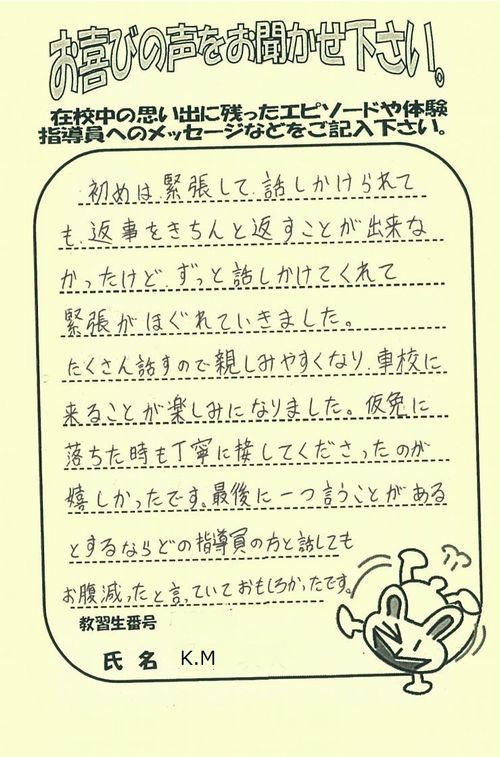 お喜びの声をお聞かせ下さい。
在校中の思い出に残ったエピソードや体験
指導員へのメッセージなどをご記入下さい。
初めは、緊張して、話しかけられて
も、返事をきちんと返すことが出来な
かったけど、ずっと話しかけてくれて
緊張がほぐれていきました。
たくさん話すので親しみやすくなり、車校に
来ることが楽しみになりました。仮免に
落ちた時も丁寧に接してくださったのが
嬉しかったです。最後に一つ言うことがある
とするならどの指導員の方と話しても
お腹減ったと言っていておもしろかったです。
教習生番号
氏名 K.M